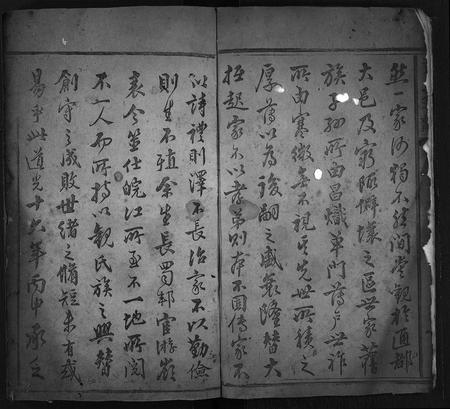 然一家何獨不然間嘗觀於通都
大邑及窮陬僻壤之區世家舊
族子孫所由昌熾單門薄戶世祚
所由寒微無不視其先世所積之
厚薄以為後嗣之盛衰隆替大
抵起家不以孝弟則本不固傳家不
以詩禮則澤不長治家不以勤儉
則生不殖余生長蜀郡官游嶺
表今筮仕皖江所至不一地所閱
不一人而所持以觀氏族之興替
創守之成敗世緒之脩短未有或
易乎此道光十六年丙申承乏